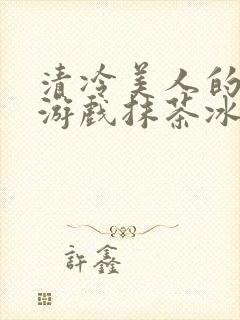 清冷美人的
游戏抹茶冰
許鑫